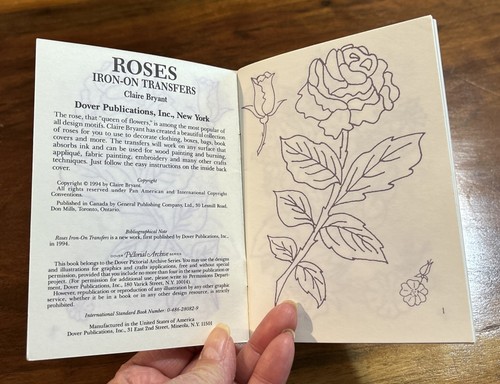 ROSES
IRON-ON TRANSFERS
Claire Bryant
Dover Publications, Inc., New York
The rose, that "queen of flowers," is among the most popular of
all design motifs. Claire Bryant has created a beautiful collection
of roses for you to use to decorate clothing, boxes, bags, book
covers and more. The transfers will work on any surface that
absorbs ink and can be used for wood painting and burning,
appliqué, fabric painting, embroidery and many other crafts
techniques. Just follow the easy instructions on the inside back
cover.
Copyright
Copyright © 1994 by Claire Bryant.
All rights reserved under Pan American and International Copyright
Conventions.
Published in Canada by General Publishing Company, Ltd., 30 Lesmill Road,
Don Mills, Toronto, Ontario.
Bibliographical Note
Roses Iron-On Transfers is a new work, first published by Dover Publications, Inc.,
in 1994.
DOVER Pictorial Archive SERIES
This book belongs to the Dover Pictorial Archive Series. You may use the designs
and illustrations for graphics and crafts applications, free and without special
permission, provided that you include no more than four in the same publication or
project. (For permission for additional use, please write to Permissions Depart-
ment, Dover Publications, Inc., 180 Varick Street, N.Y. 10014).
However, republication or reproduction of any illustration by any other graphic
service, whether it be in a book or in any other design resource, is strictly
prohibited.
International Standard Book Number: 0-486-28082-9
Manufactured in the United States of America
Dover Publications, Inc., 31 East 2nd Street, Mineola, N.Y. 11501
1